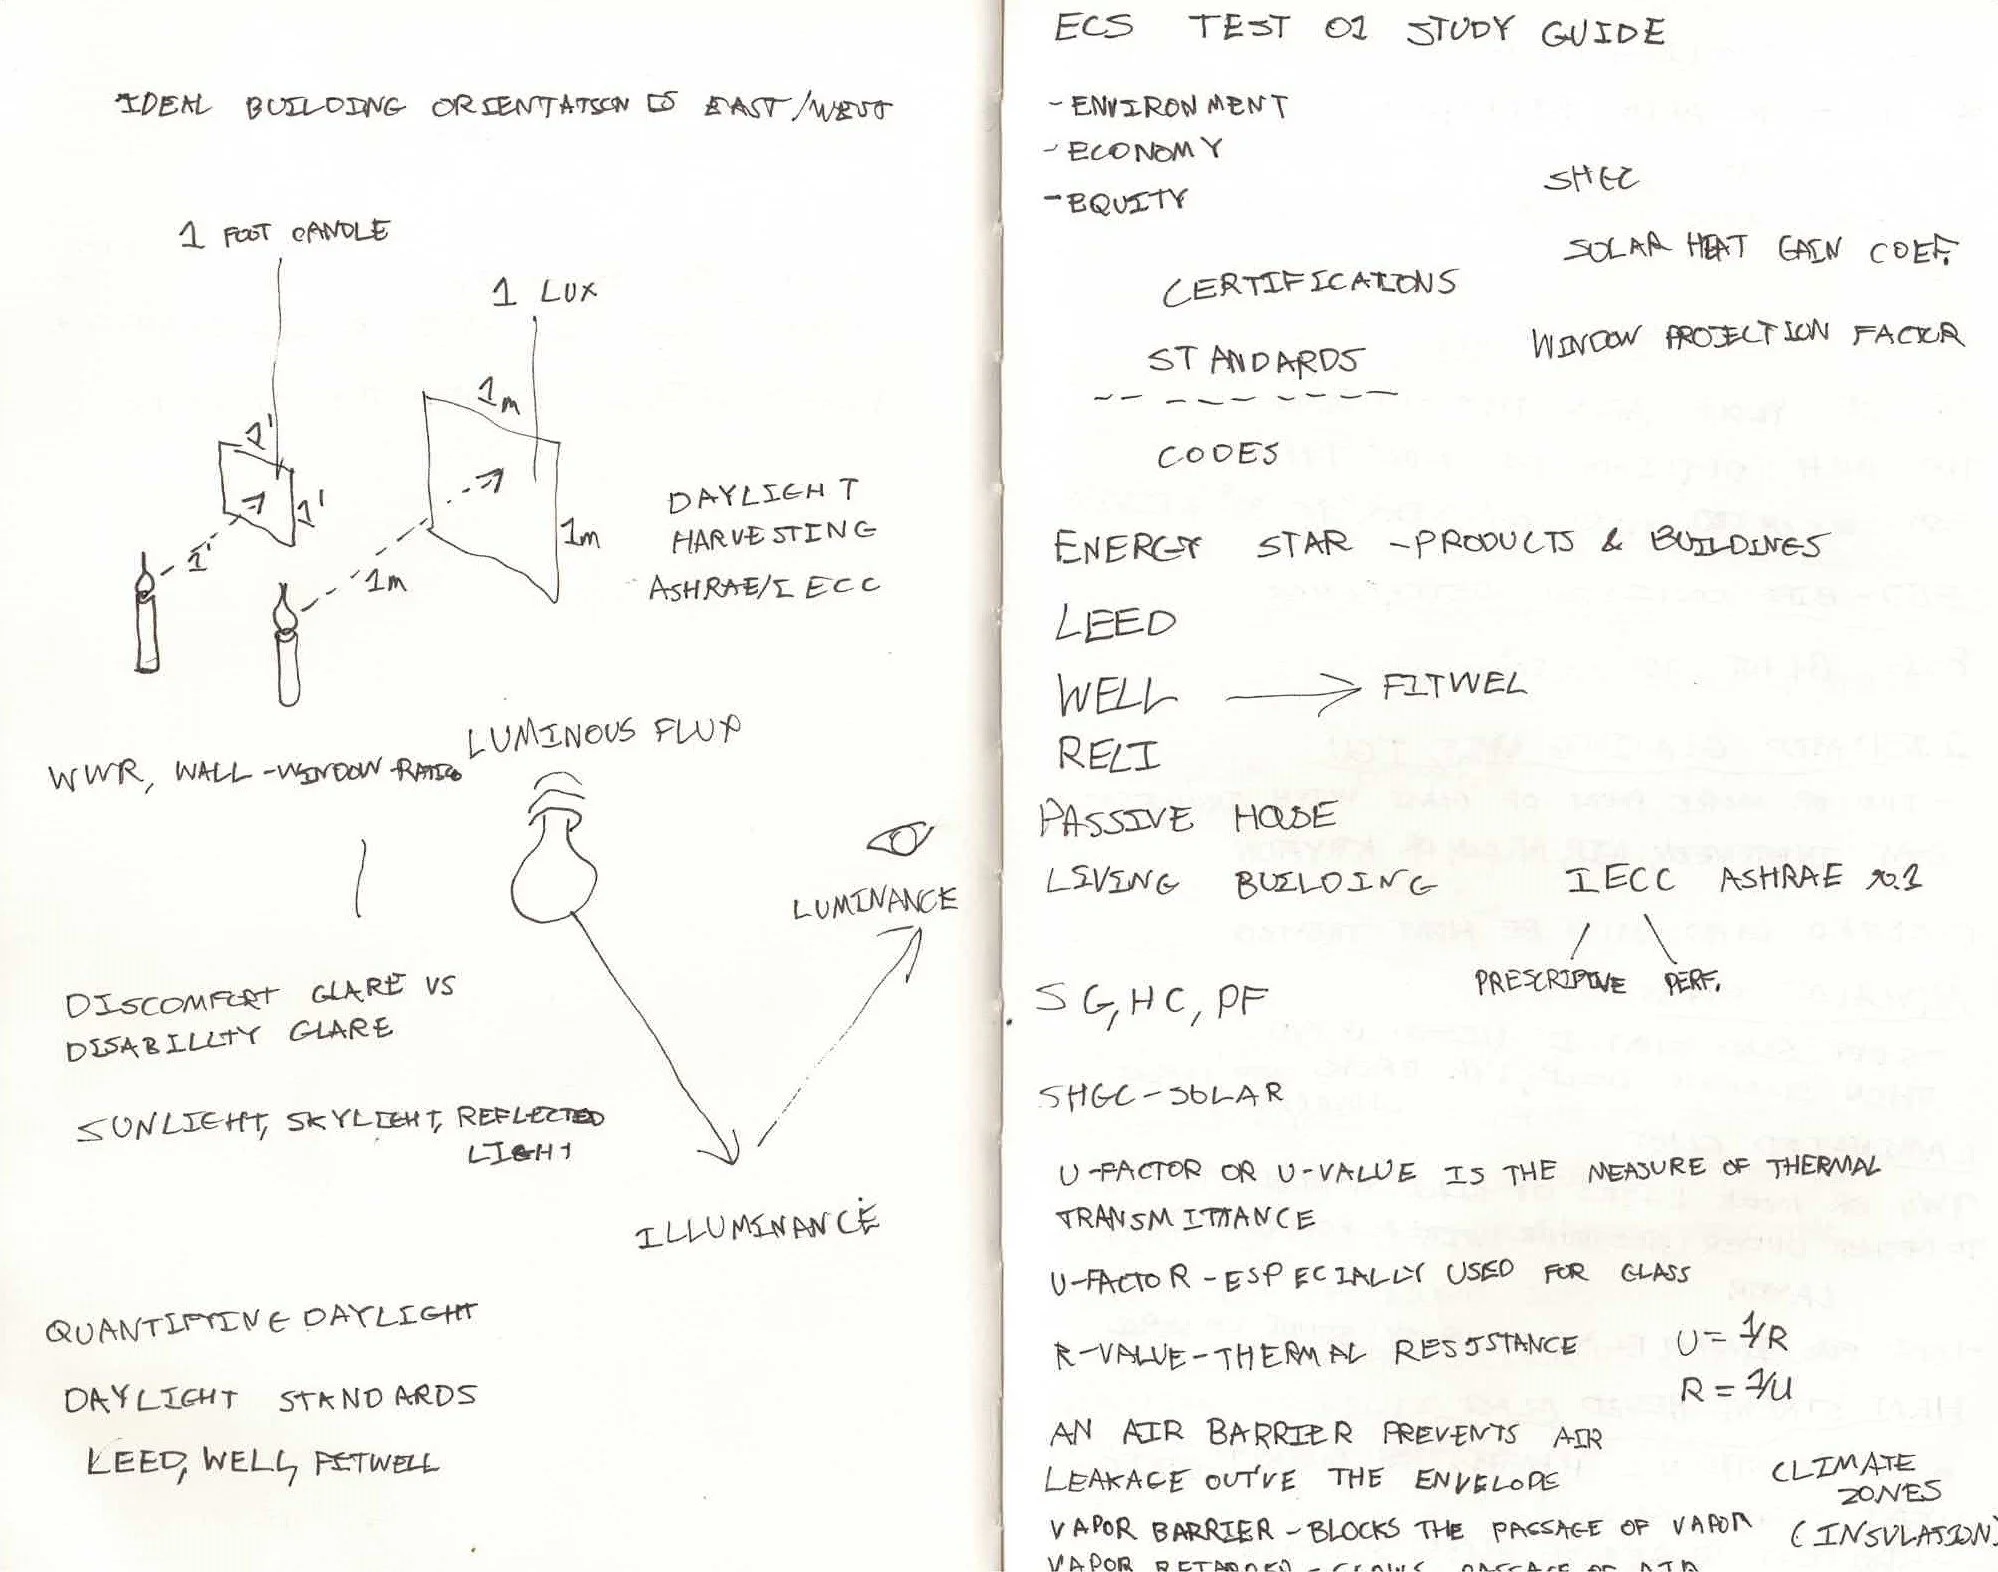 IDEAL BUILDING ORIENTATION IS EAST/WEST
1 FOOT CANDLE
1 LUX
1'
1'
1'
1m
1m
1m
DAYLIGHT
HARVESTING
ASHRAE/IECC
LUMINOUS FLUX
WWR, WALL-WINDOW-RATIO
LUMINANCE
DISCOMFORT GLARE VS
DISABILITY GLARE
SUNLIGHT, SKYLIGHT, REFLECTED
LIGHT
ILLUMINANCE
QUANTIFYING DAYLIGHT
DAYLIGHT STANDARDS
LEED, WELL, FITWELL
ECS TEST 01 STUDY GUIDE
-ENVIRONMENT
-ECONOMY
-EQUITY
SHGC
SOLAR HEAT GAIN COEF.
CERTIFICATIONS
WINDOW PROJECTION FACTOR
STANDARDS
CODES
ENERGY STAR -PRODUCTS & BUILDINGS
LEED
WELL → FITWEL
RELI
PASSIVE HOUSE
LIVING BUILDING
IECC ASHRAE 90.1
PRESCRIPTIVE PERF.
SG, HC, PF
SHGC-SOLAR
U-FACTOR OR U-VALUE IS THE MEASURE OF THERMAL
TRANSMITTANCE
U-FACTOR-ESPECIALLY USED FOR GLASS
R-VALUE-THERMAL RESISTANCE
U = 1/R
R = 1/U
AN AIR BARRIER PREVENTS AIR
LEAKAGE OUT'VE THE ENVELOPE
CLIMATE
ZONES
(INSULATION)
VAPOR BARRIER-BLOCKS THE PASSAGE OF VAPOR
VAPOR RETARDER-SLOWS PASSAGE OF AIR